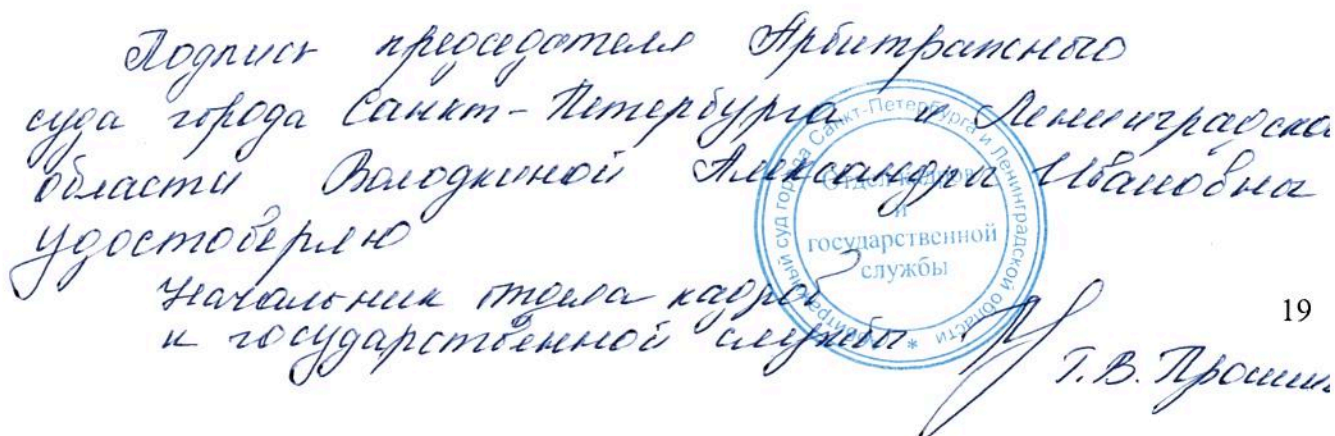 Подпись председателя Арбитражного
суда города Санкт-Петербурга и Ленинградско
области Володкиной Александры Ивановна
удостоверяю
Начальник отдела кадров
и государственной службы
Т.В.
19
Арбитражный суд города Санкт-Петербурга и Ленинградской области *
Отдел кадров
и
государственной
службы